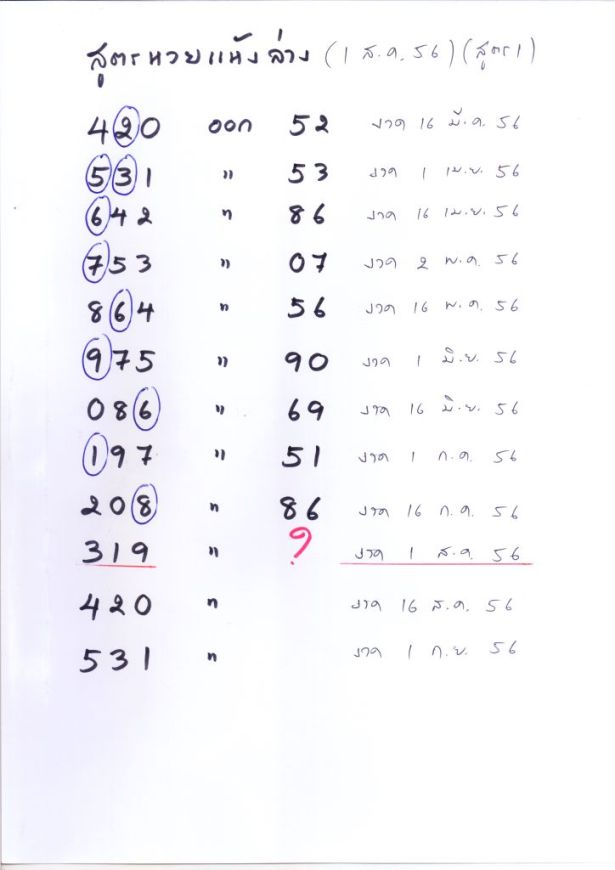 สูตรหวยแห้งล่าง (1 ส.ค. 56) (สูตร 1)
420 ออก 52 งวด 16 มี.ค. 56
531 " 53 งวด 1 เม.ย. 56
642 " 86 งวด 16 เม.ย. 56
753 " 07 งวด 2 พ.ค. 56
864 " 56 งวด 16 พ.ค. 56
975 " 90 งวด 1 มิ.ย. 56
086 " 69 งวด 16 มิ.ย. 56
197 " 51 งวด 1 ก.ค. 56
208 " 86 งวด 16 ก.ค. 56
319 " ? งวด 1 ส.ค. 56
420 " งวด 16 ส.ค. 56
531 " งวด 1 ก.ย. 56